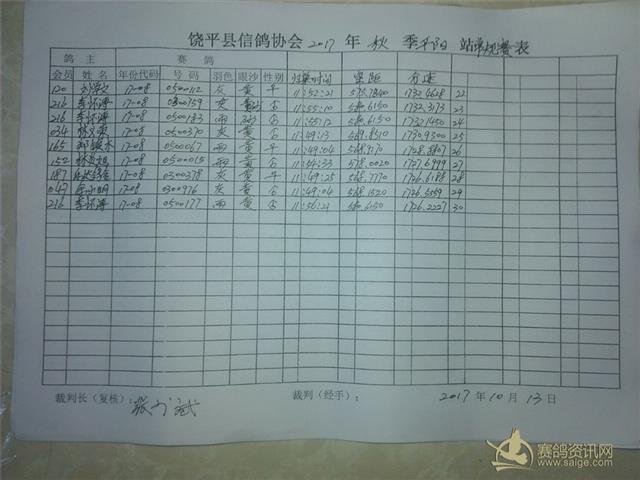 饶平县信鸽协会2017年秋季平阳站常规赛表
鸽主 赛鸽
会员 姓名 年份代码 号码 羽色 眼沙 性别 归巢时间 空距 分速
120 17-08 0500112 灰 黄 平 11:52:21 575.7840 1732.4628 22
216 李怀涛 17-08 0300759 灰 否 11:55:10 580.6150 1732.3173 23
216 李怀涛 17-08 0500183 雨 否 11:55:12 580.6150 1732.1450 24
034 17-08 0500370 灰 黄 否 11:49:13 569.8510 1730.9300 25
165 17-08 0500067 雨 黄 否 11:49:04 568.9170 1728.8807 26
152 17-08 0500015 雨 黄 否 11:54:33 578.0020 1727.6999 27
187 17-08 0300378 灰 黄 平 11:49:25 568.7770 1726.6188 28
047 17-08 0300976 灰 黄 否 11:49:04 568.1520 1726.5559 29
216 李怀涛 17-08 0500177 雨 黄 否 11:56:21 580.6150 1726.2227 30
裁判长（复核）： 裁判（经手）： 2017年10月13日
赛鸽资讯网
www.saige.com